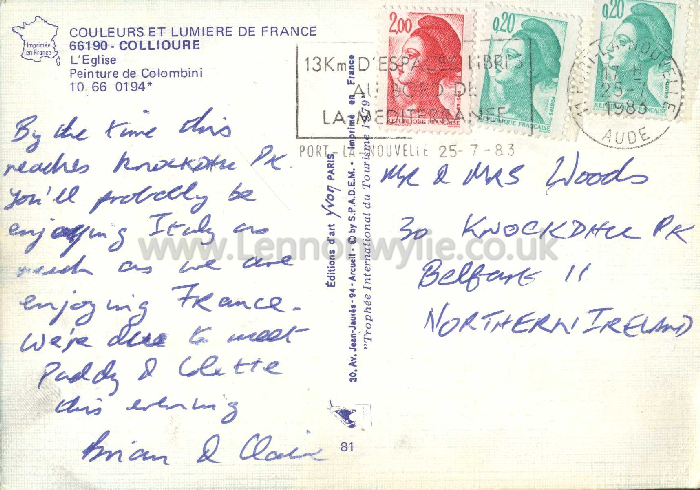 COULEURS ET LUMIERE DE FRANCE
66190 - COLLIOURE
L'Eglise
Peinture de Colombini
10.66 0194*
Imprimée
en France
By the time this
reaches Knockdhu Pk
you'll probably be
enjoying Italy as
much as we are
enjoying France.
We're due to meet
Paddy & Colette
this evening
Brian & Claire
Editions d'art yvon PARIS
30, Av. Jean-Jaurès - 94 - Arcueil - © by S.P.A.D.E.M. - Imprimé en France
"Trophée International du Tourisme 1979"
81
2,00
0,20
0,20
13Km D'ESPACES LIBRES
AU BORD DE
LA MEDITERRANEE
PORT-LA-NOUVELLE 25-7-83
11 PORT-LA-NOUVELLE
17 H
25-7
1983
AUDE
MR & MRS Woods
30 KNOCKDHU PK
Belfast 11
NORTHERN IRELAND
www.Lennonwylie.co.uk